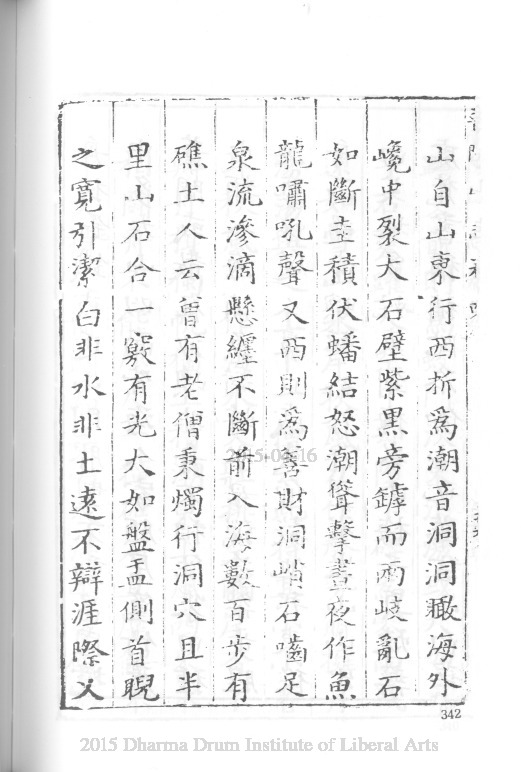 山自山東行西折爲潮音洞洞瞰海外
巉中裂大石壁紫黑旁鏬而兩岐亂石
如斷圭積伏蟠結怒潮聳擊晝夜作魚
龍嘯吼聲又西則爲善財洞峭石嚙足
泉流滲滴懸纓不斷前入海數百步有
礁土人云曾有老僧秉燭行洞穴且半
里山石合一竅有光大如盤盂側首睨
之寬引潔白非水非土遠不辯涯際又
342
2015-06-16
2015 Dharma Drum Institute of Liberal Arts